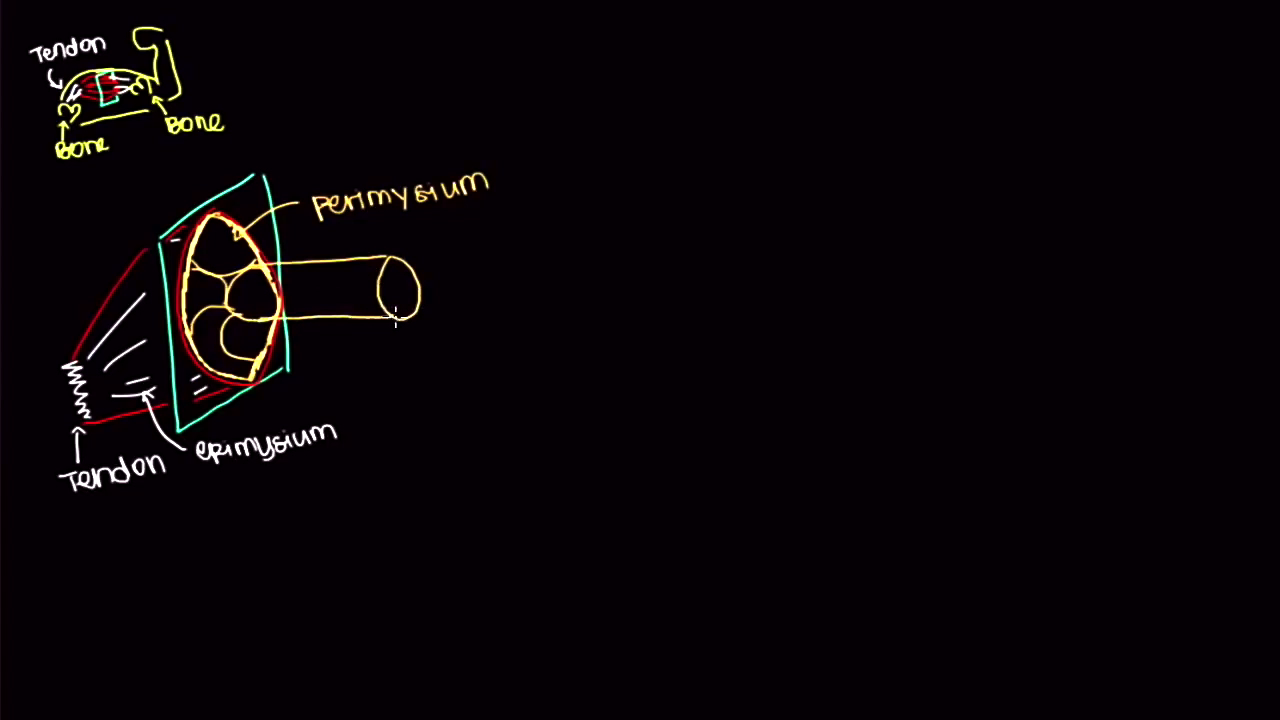 Tendon
Bone
Bone
perimysium
epimysium
Tendon